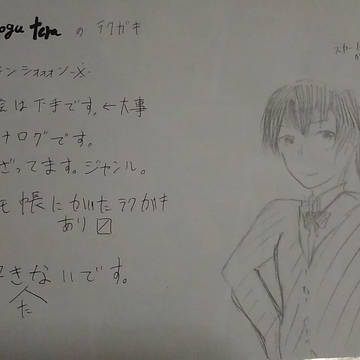 ogu tera の ラクガキ
ンショオオン-×-
は下手です。←大事
ナログです。
ざってます。ジャンル。
帳にかいたラクガキ
あり
きないです。
た
スカー